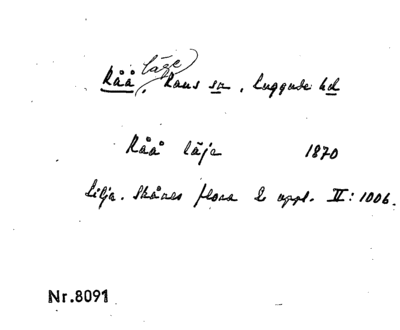 läge
Råå, Raus sn, Luggude hd
Råå läje 1870
Lilja. Skånes flora 2 uppl. II: 1006.
Nr.8091